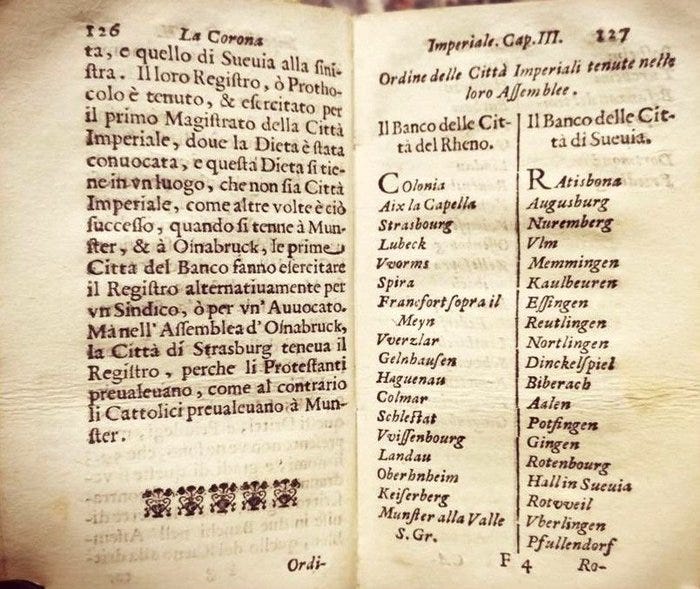 126 La Corona
ta, e quello di Sueuia alla sini-
ſtra. Il loro Regiſtro, ò Protho-
colo è tenuto, & eſercitato per
il primo Magiſtrato della Città
Imperiale, doue la Dieta è ſtata
conuocata, e queſta Dieta ſi tie-
ne in vn luogo, che non ſia Città
Imperiale, come altre volte è ciò
ſucceſſo, quando ſi tenne à Mun-
ſter, & à Oſnabruck, le prime
Città del Banco fanno eſercitare
il Regiſtro alternatiuamente per
vn Sindico, ò per vn' Auuocato.
Mà nell' Aſſemblea d'Oſnabruck,
la Città di Strasburg teneua il
Regiſtro, perche li Proteſtanti
preualeuano, come al contrario
li Cattolici preualeuano à Mun-
ſter.
Ordi-
Imperiale. Cap. III. 127
Ordine delle Città Imperiali tenute nelle
loro Aſſemblee.
Il Banco delle Cit-
tà del Rheno.
Colonia
Aix la Capella
Strasbourg
Lubeck
Vvorms
Spira
Francfort ſopra il
Meyn
Vverzlar
Gelnhauſen
Haguenau
Colmar
Schleſtat
Vviſſenbourg
Landau
Oberhnheim
Keiſerberg
Munſter alla Valle
S. Gr.
Il Banco delle Cit-
tà di Sueuia.
Ratisbona
Augusburg
Nuremberg
Vlm
Memmingen
Kaulbeuren
Eſſingen
Reutlingen
Nortlingen
Dinckelſpiel
Biberach
Aalen
Potfingen
Gingen
Rotenbourg
Hall in Sueuia
Rotvveil
Vberlingen
Pfullendorf
F 4 Ro-